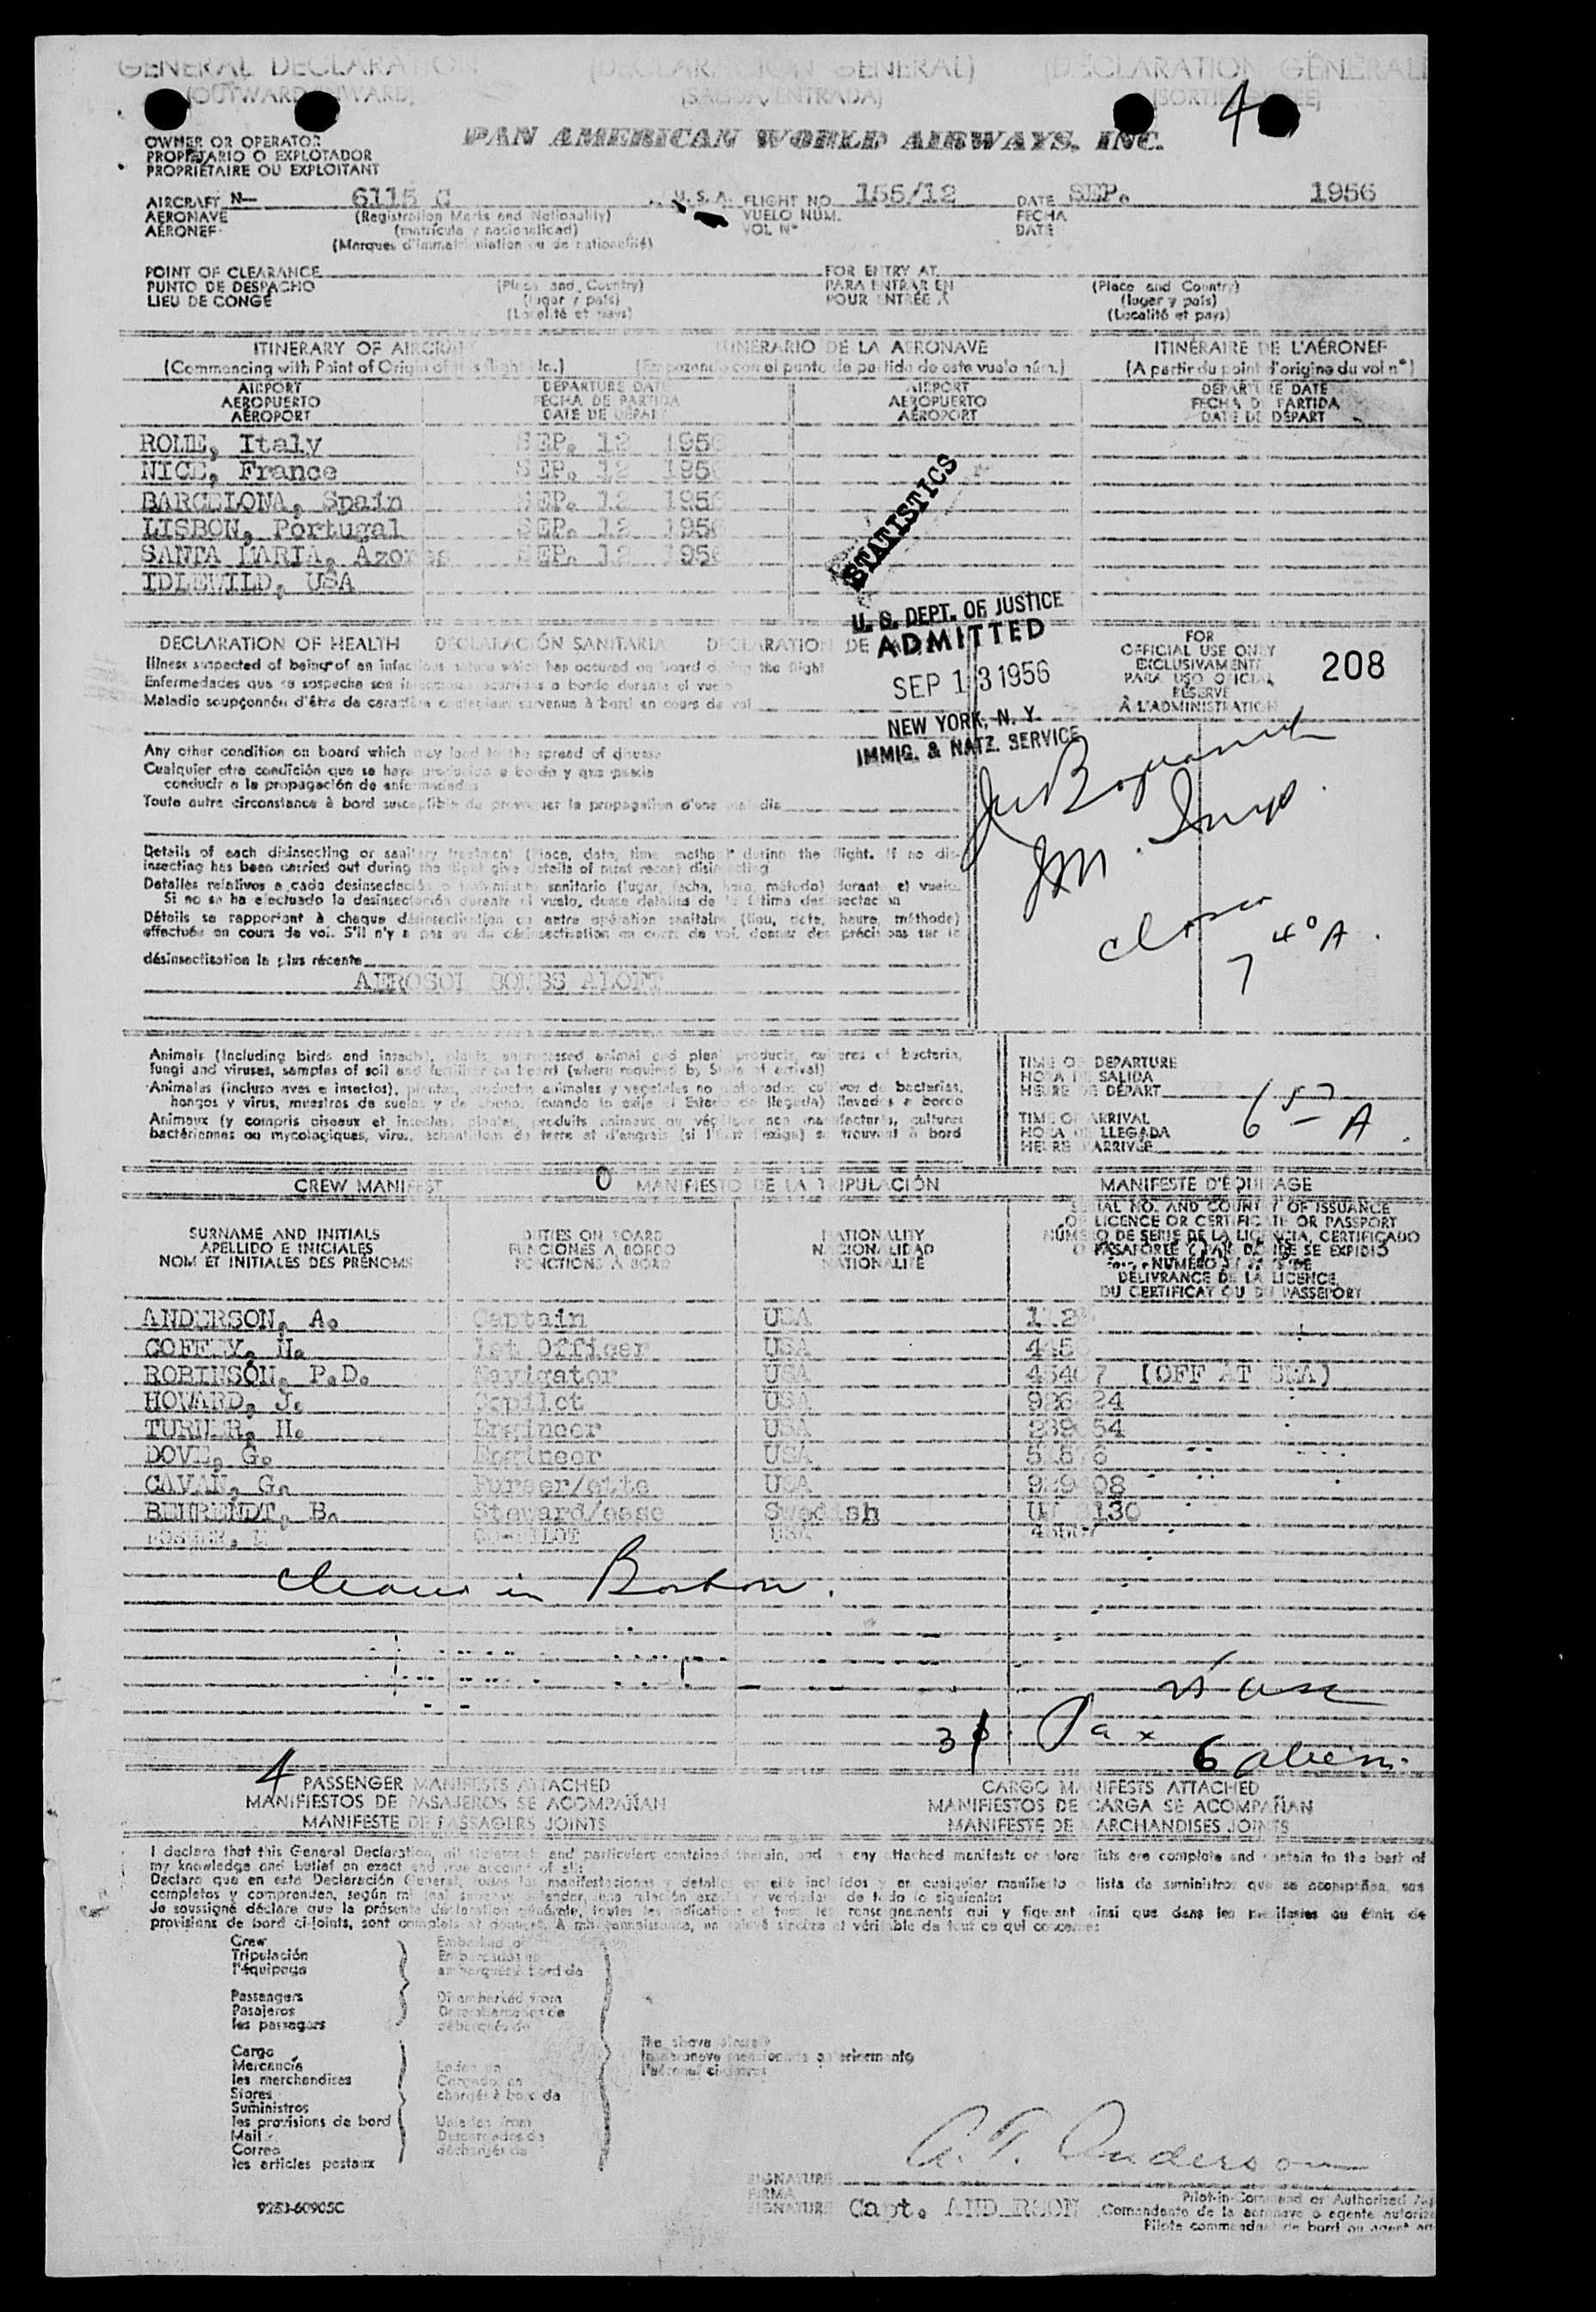 GENERAL DECLARATION (DECLARACION GENERAL) (DECLARATION GÉNÉRALE
(OUTWARD/INWARD) (SALIDA/ENTRADA)
4
OWNER OR OPERATOR
PROPIETARIO O EXPLOTADOR
PROPRIÉTAIRE OU EXPLOITANT
PAN AMERICAN WORLD AIRWAYS, INC.
AIRCRAFT N— 6115 C U.S.A. FLIGHT NO. 155/12 DATE SEP. 1956
AERONAVE (Registration Marks and Nationality) VUELO NÚM. FECHA
AÉRONEF (matrícula y nacionalidad) VOL Nº DATE
(Marques d'immatriculation ou de nationalité)
POINT OF CLEARANCE FOR ENTRY AT
PUNTO DE DESPACHO (Place and Country) PARA ENTRAR EN (Place and Country)
LIEU DE CONGÉ (lugar y país) POUR ENTRÉE À (lugar y país)
(Localité et pays) (Localité et pays)
ITINERARY OF AIRCRAFT ITINERARIO DE LA AERONAVE ITINÉRAIRE DE L'AÉRONEF
(Commencing with Point of Origin of this flight No.) (Empezando con el punto de partida de este vuelo núm.) (A partir du point d'origine du vol nº)
AIRPORT DEPARTURE DATE AIRPORT DEPARTURE DATE
AEROPUERTO FECHA DE PARTIDA AEROPUERTO FECHA DE PARTIDA
AÉROPORT DATE DE DÉPART AÉROPORT DATE DE DÉPART
ROME, Italy SEP. 12 1956
NICE, France SEP. 12 1956
BARCELONA, Spain SEP. 12 1956
LISBON, Portugal SEP. 12 1956
SANTA MARIA, Azores SEP. 12 1956
IDLEWILD, USA
STATISTICS
U. S. DEPT. OF JUSTICE
ADMITTED
SEP 13 1956
NEW YORK, N. Y.
IMMIG. & NATZ. SERVICE
DECLARATION OF HEALTH DECLARACIÓN SANITARIA DECLARATION DE
FOR
OFFICIAL USE ONLY
EXCLUSIVAMENTE
PARA USO OFICIAL
RÉSERVÉ
À L'ADMINISTRATION
208
Illness suspected of being of an infectious nature which has occured on board during the flight
Enfermedades que se sospecha son infecciosas ocurridas a bordo durante el vuelo
Maladie soupçonnée d'être de caractère contagieux survenue à bord en cours de vol
Any other condition on board which may lead to the spread of disease
Cualquier otra condición que se haya producido a bordo y que pueda
conducir a la propagación de enfermedades
Toute autre circonstance à bord susceptible de provoquer la propagation d'une maladie
Details of each disinsecting or sanitary treatment (place, date, time, method) during the flight. If no dis-
insecting has been carried out during the flight give details of most recent disinsecting
Detalles relativos a cada desinsectación o tratamiento sanitario (lugar, fecha, hora, método) durante el vuelo.
Si no se ha efectuado la desinsectación durante el vuelo, dense detalles de la última desinsectación
Détails se rapportant à chaque désinsectisation ou autre opération sanitaire (lieu, date, heure, méthode)
effectuée en cours de vol. S'il n'y a pas eu de désinsectisation en cours de vol, donner des précisions sur la
désinsectisation la plus récente
AEROSOL BOMBS ALOFT
7 40 A.
Animals (including birds and insects), plants, unprocessed animal and plant products, cultures of bacteria,
fungi and viruses, samples of soil and fertilizer on board (where required by State of arrival)
Animales (incluso aves e insectos), plantas, productos animales y vegetales no elaborados, cultivos de bacterias,
hongos y virus, muestras de suelos y de abonos (cuando lo exija el Estado de llegada) llevados a bordo
Animaux (y compris oiseaux et insectes) plantes, produits animaux ou végétaux non manufacturés, cultures
bactériennes ou mycologiques, virus, échantillons de terre et d'engrais (si l'État l'exige) se trouvant à bord
TIME OF DEPARTURE
HORA DE SALIDA
HEURE DE DÉPART
TIME OF ARRIVAL
HORA DE LLEGADA
HEURE D'ARRIVÉE
6 57 A.
CREW MANIFEST MANIFIESTO DE LA TRIPULACIÓN MANIFESTE D'ÉQUIPAGE
SURNAME AND INITIALS DUTIES ON BOARD NATIONALITY SERIAL NO. AND COUNTRY OF ISSUANCE
APELLIDO E INICIALES FUNCIONES A BORDO NACIONALIDAD OF LICENCE OR CERTIFICATE OR PASSPORT
NOM ET INITIALES DES PRÉNOMS FONCTIONS À BORD NATIONALITÉ NÚMERO DE SERIE DE LA LICENCIA, CERTIFICADO
DÉLIVRANCE DE LA LICENCE,
DU CERTIFICAT OU DU PASSEPORT
ANDERSON, A. Captain USA
COFFEY, H. 1st Officer USA
ROBINSON, P.D. Navigator USA 45407 (OFF AT SEA)
HOWARD, J. Copilot USA
TURNER, H. Engineer USA
DOVE, G. Engineer USA
CAVAN, G. Purser/ette USA
BEHRENDT, B. Steward/esse Swedish
CO-PILOT USA
in Boston.
Pax
6 aliens
4 PASSENGER MANIFESTS ATTACHED CARGO MANIFESTS ATTACHED
MANIFIESTOS DE PASAJEROS SE ACOMPAÑAN MANIFIESTOS DE CARGA SE ACOMPAÑAN
MANIFESTE DE PASSAGERS JOINTS MANIFESTE DE MARCHANDISES JOINTS
I declare that this General Declaration, all statements and particulars contained therein, and in any attached manifests or stores lists are complete and contain to the best of
my knowledge and belief an exact and true account of all:
Declaro que en esta Declaración General, todas las manifestaciones y detalles en ella incluidos y en cualquier manifiesto o lista de suministros que se acompañan, son
completos y comprenden, según mi leal saber y entender, una relación exacta y verdadera de todo lo siguiente:
Je soussigné déclare que la présente déclaration générale, toutes les indications et tous les renseignements qui y figurent ainsi que dans les manifestes ou états de
provisions de bord ci-joints, sont complets et donnent, à ma connaissance, un relevé sincère et véritable de tout ce qui concerne:
Crew Embarked on
Tripulación Embarcados en
l'équipage embarqués à bord de
Passengers Disembarked from
Pasajeros Desembarcados de
les passagers débarqués de
The above aircraft
la aeronave mencionada anteriormente
Cargo
Mercancía Laden on
les merchandises Cargados en
Stores chargés à bord de
Suministros
les provisions de bord Unladen from
Mail Descargados de
Correo déchargés de
les articles postaux
A. T. Anderson
SIGNATURE
FIRMA
SIGNATURE Capt. ANDERSON
Pilot-in-Command or Authorized
Comandante de la aeronave o agente
Pilote commandant de bord ou agent
9253-60905C